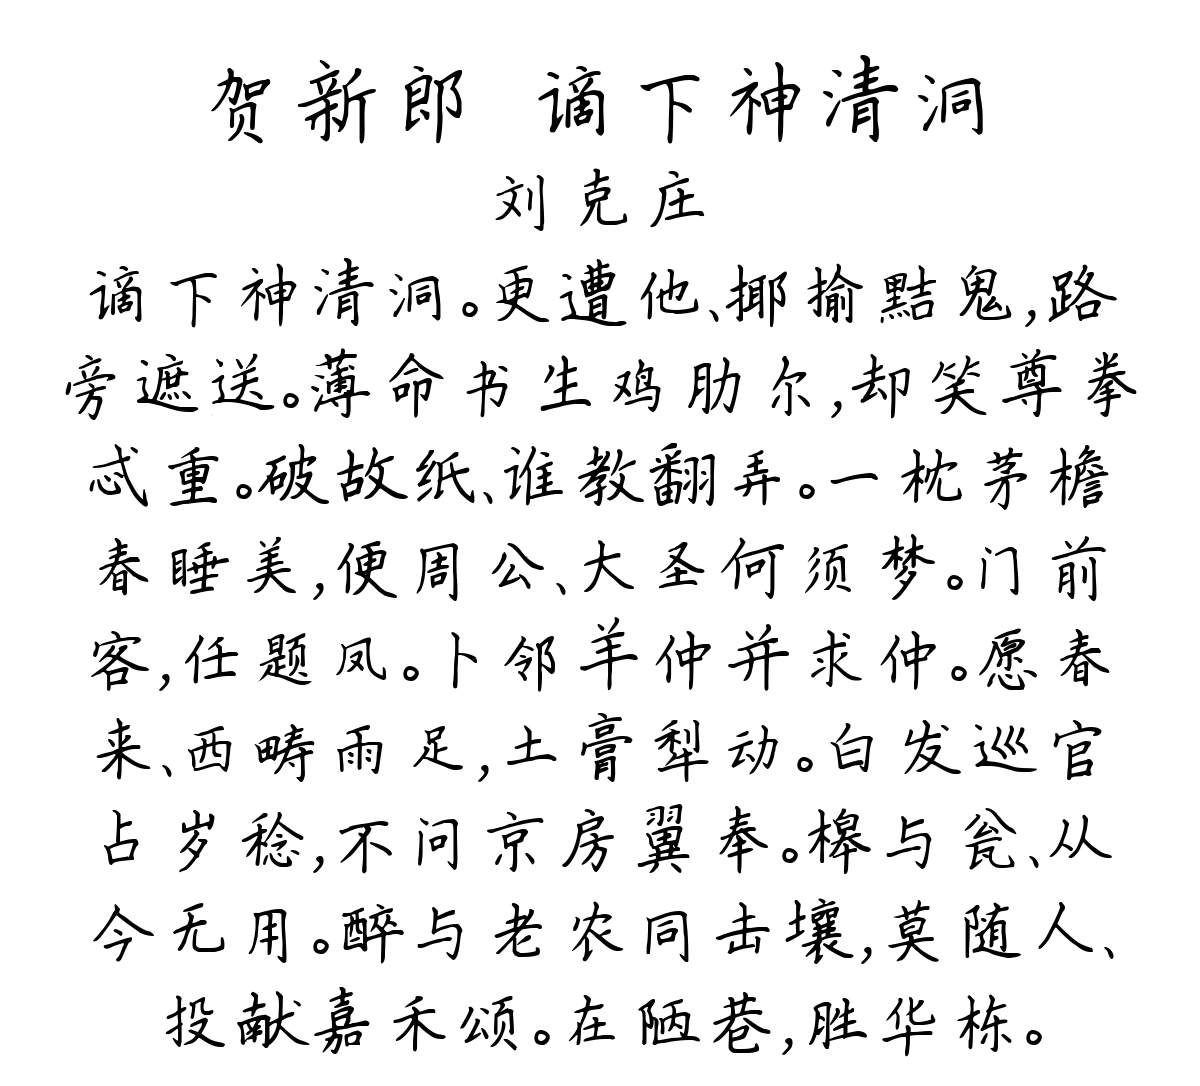 贺新郎 谪下神清洞
刘克庄
谪下神清洞。更遭他、揶揄黠鬼,路
旁遮送。薄命书生鸡肋尔,却笑尊拳
忒重。破故纸、谁教翻弄。一枕茅檐
春睡美,便周公、大圣何须梦。门前
客,任题凤。卜邻羊仲并求仲。愿春
来、西畴雨足,土膏犁动。白发巡官
占岁稔,不问京房翼奉。槔与瓮、从
今无用。醉与老农同击壤,莫随人、
投献嘉禾颂。在陋巷,胜华栋。